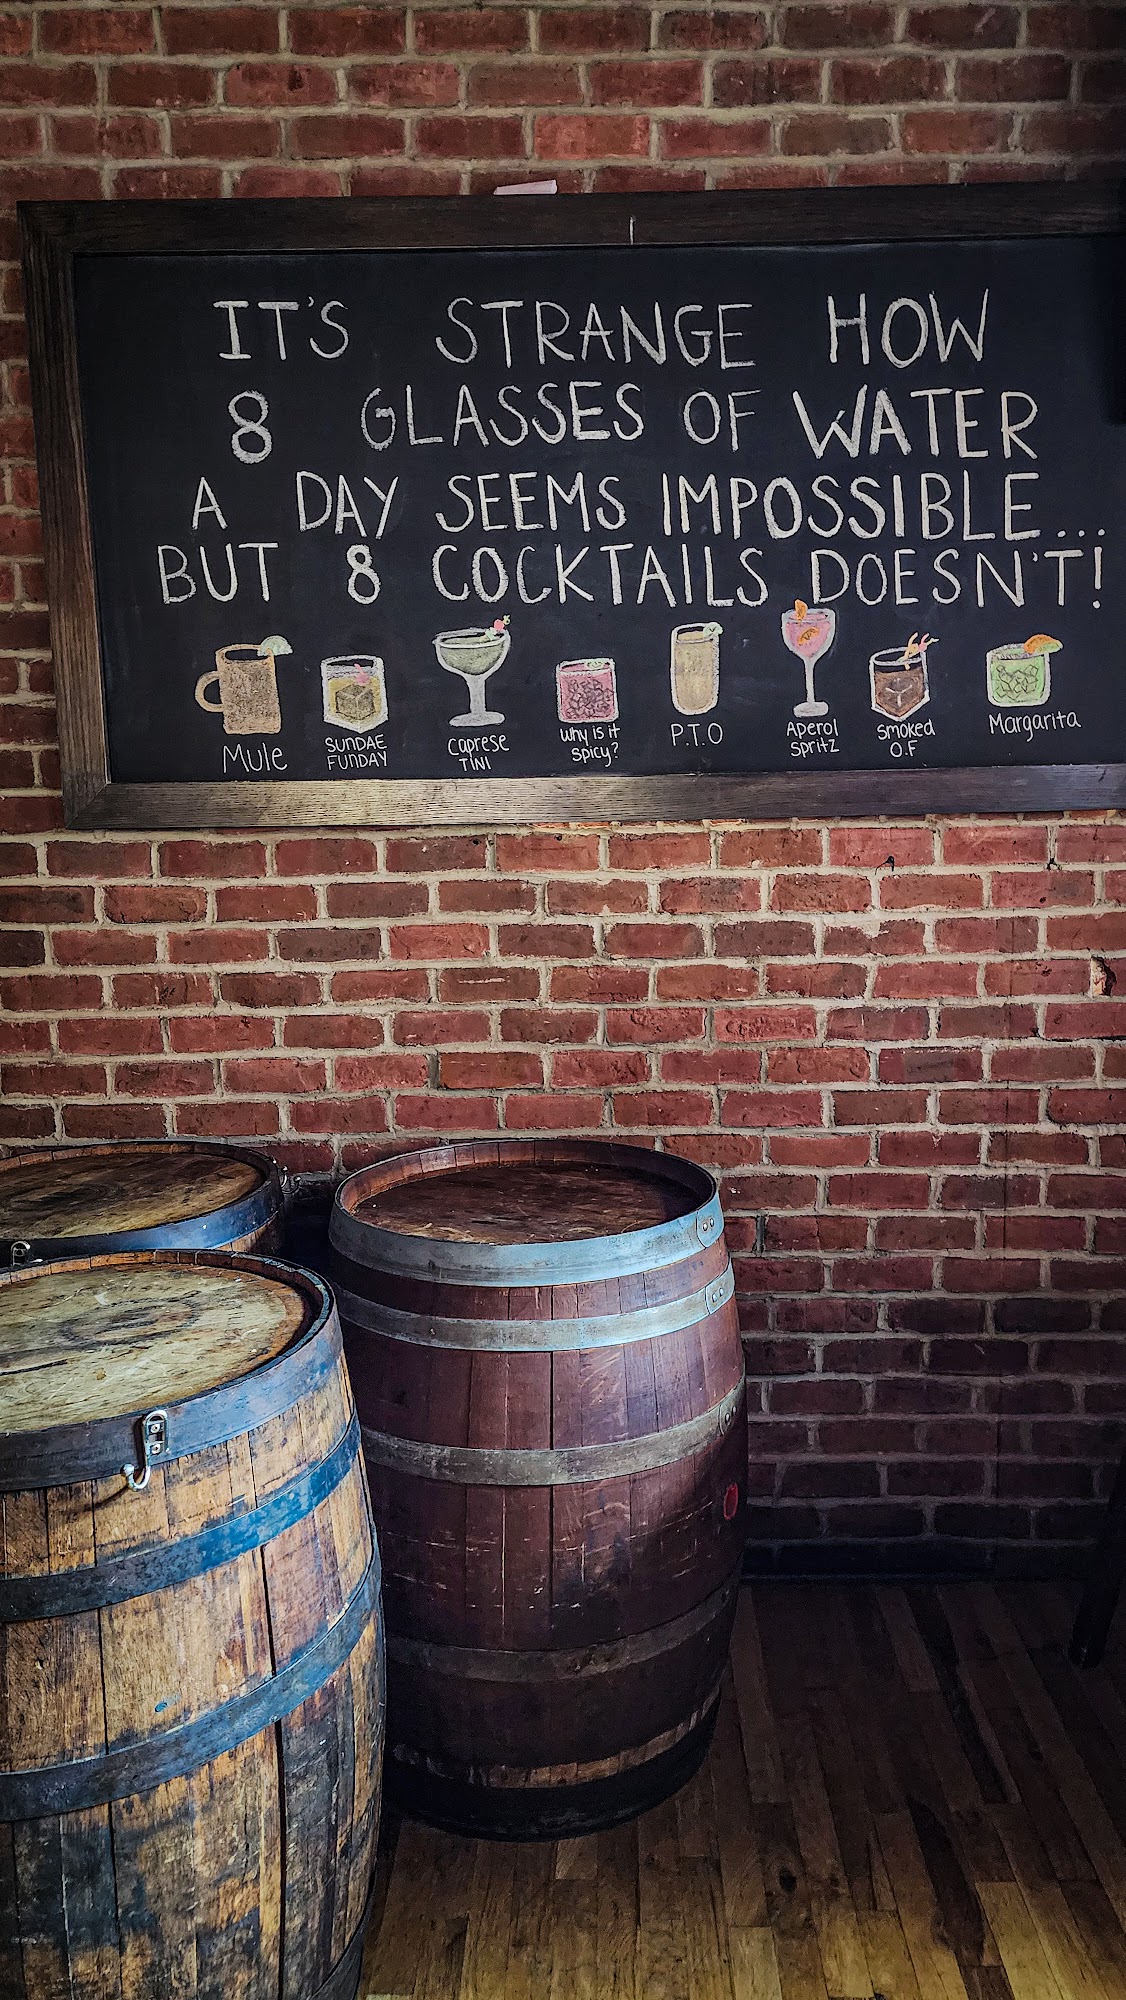 IT'S STRANGE HOW
8 GLASSES OF WATER
A DAY SEEMS IMPOSSIBLE...
BUT 8 COCKTAILS DOESN'T!
Mule
SUNDAE
FUNDAY
Caprese
TINI
Why is it
spicy?
P.T.O
Aperol
Spritz
Smoked
O.F
Margarita